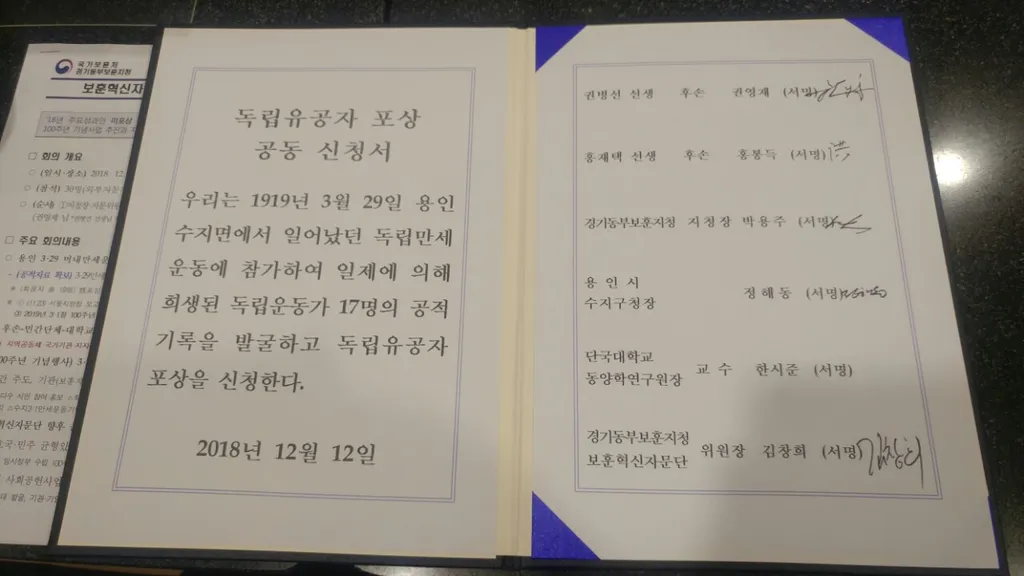 국가보훈처
경기동부보훈지청
보훈혁신자
'18년 주요성과안 미포상
100주년 기념사업 추진과
□ 회의 개요
○ (일시·장소) 2018. 12.
○ (참석) 30명(외부자문
□ 주요 회의내용
○ 용인 3·29 머내만세운
- (공적자료 확보) 3·29만세
후손-민간단체-대학교
지역공동체 국가기관·지자
00주년 기념행사) 3·
혁신자문단 향후
호국·민주 균형있
사회공헌사업
독립유공자 포상
공동 신청서
우리는 1919년 3월 29일 용인
수지면에서 일어났던 독립만세
운동에 참가하여 일제에 의해
희생된 독립운동가 17명의 공적
기록을 발굴하고 독립유공자
포상을 신청한다.
2018년 12월 12일
권명선 선생 후손 권영재 (서명)
홍재택 선생 후손 홍봉득 (서명) 洪
경기동부보훈지청 지청장 박용주 (서명)
용 인 시
수지구청장 정해동 (서명)
단국대학교
동양학연구원장 교 수 한시준 (서명)
경기동부보훈지청
보훈혁신자문단 위원장 김창희 (서명) 김창희